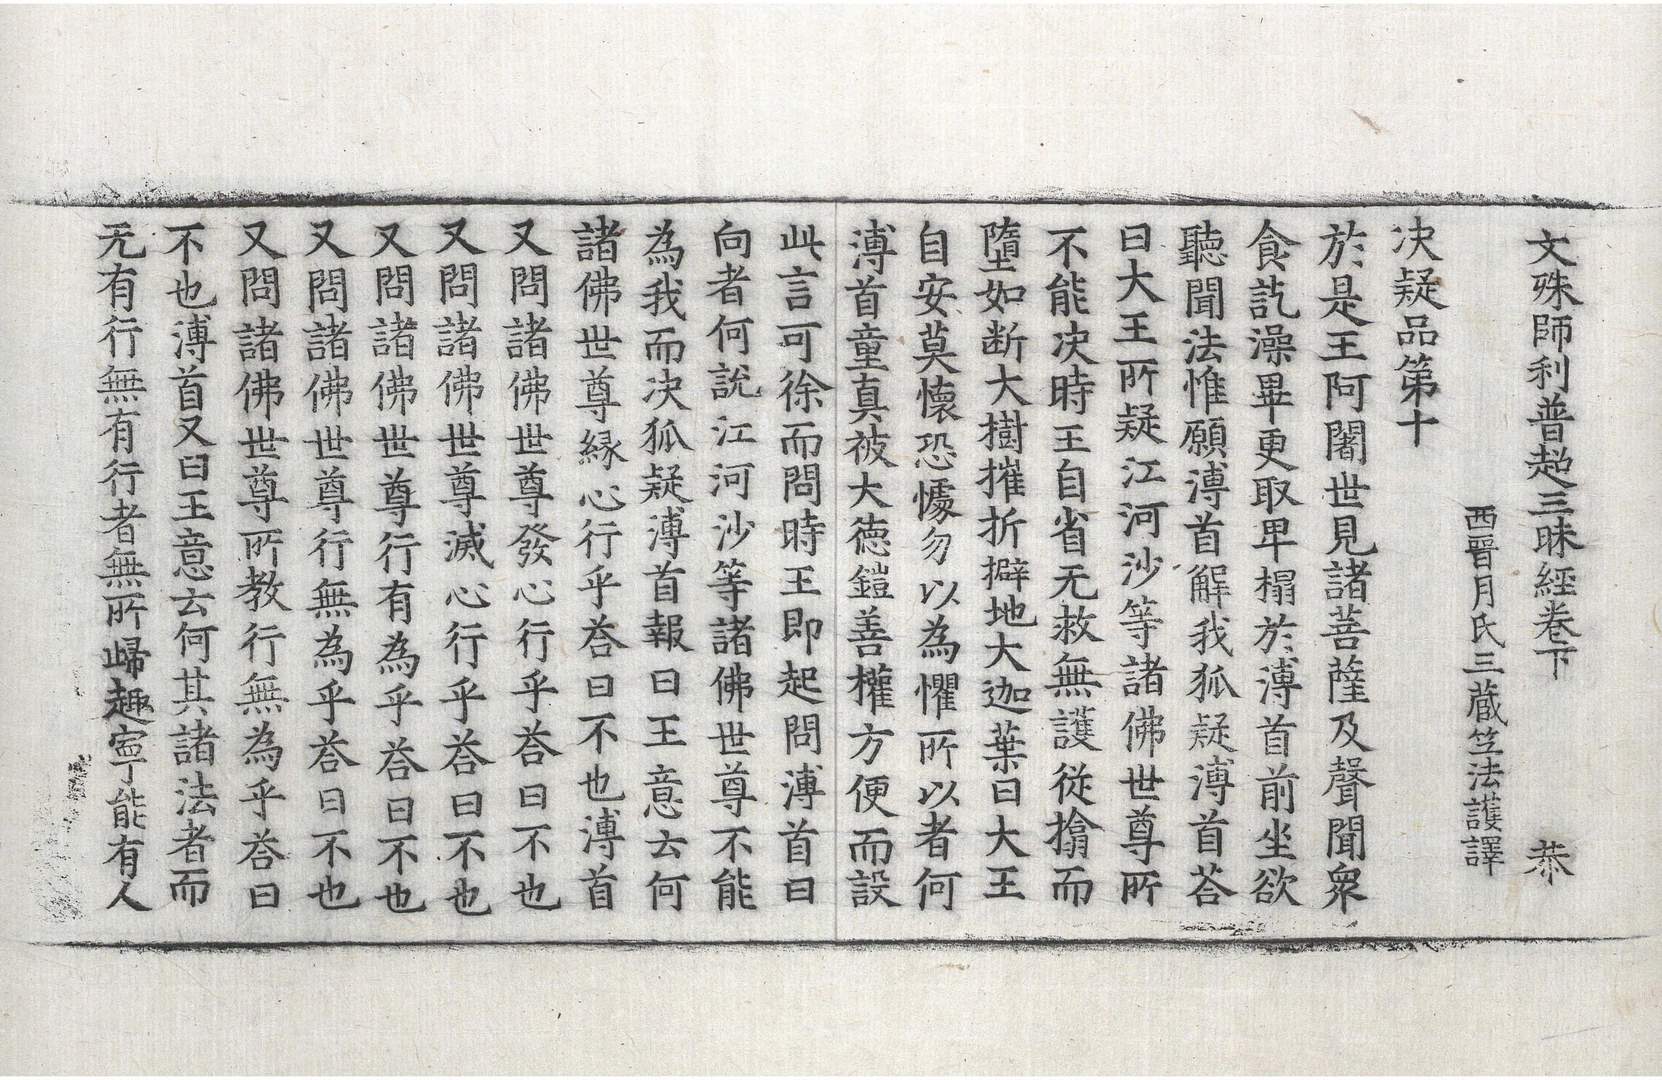 文殊師利普超三昧經卷下　恭
西晉月氏三藏竺法護譯
决疑品第十
於是王阿闍世見諸菩薩及聲聞衆
食訖澡畢更取卑榻於溥首前坐欲
聽聞法惟願溥首解我狐疑溥首荅
曰大王所疑江河沙等諸佛世尊所
不能决時王自省无救無護從揄而
墮如断大樹摧折擗地大迦葉曰大王
自安莫懷恐懅勿以為懼所以者何
溥首童真被大德鎧善權方便而設
此言可徐而問時王即起問溥首曰
向者何說江河沙等諸佛世尊不能
為我而决狐疑溥首報曰王意云何
諸佛世尊縁心行乎荅曰不也溥首
又問諸佛世尊發心行乎荅曰不也
又問諸佛世尊滅心行乎荅曰不也
又問諸佛世尊行有為乎荅曰不也
又問諸佛世尊行無為乎荅曰不也
又問諸佛世尊所教行無為乎荅曰
不也溥首又曰王意云何其諸法者而
无有行無有行者無所歸趣寧能有人